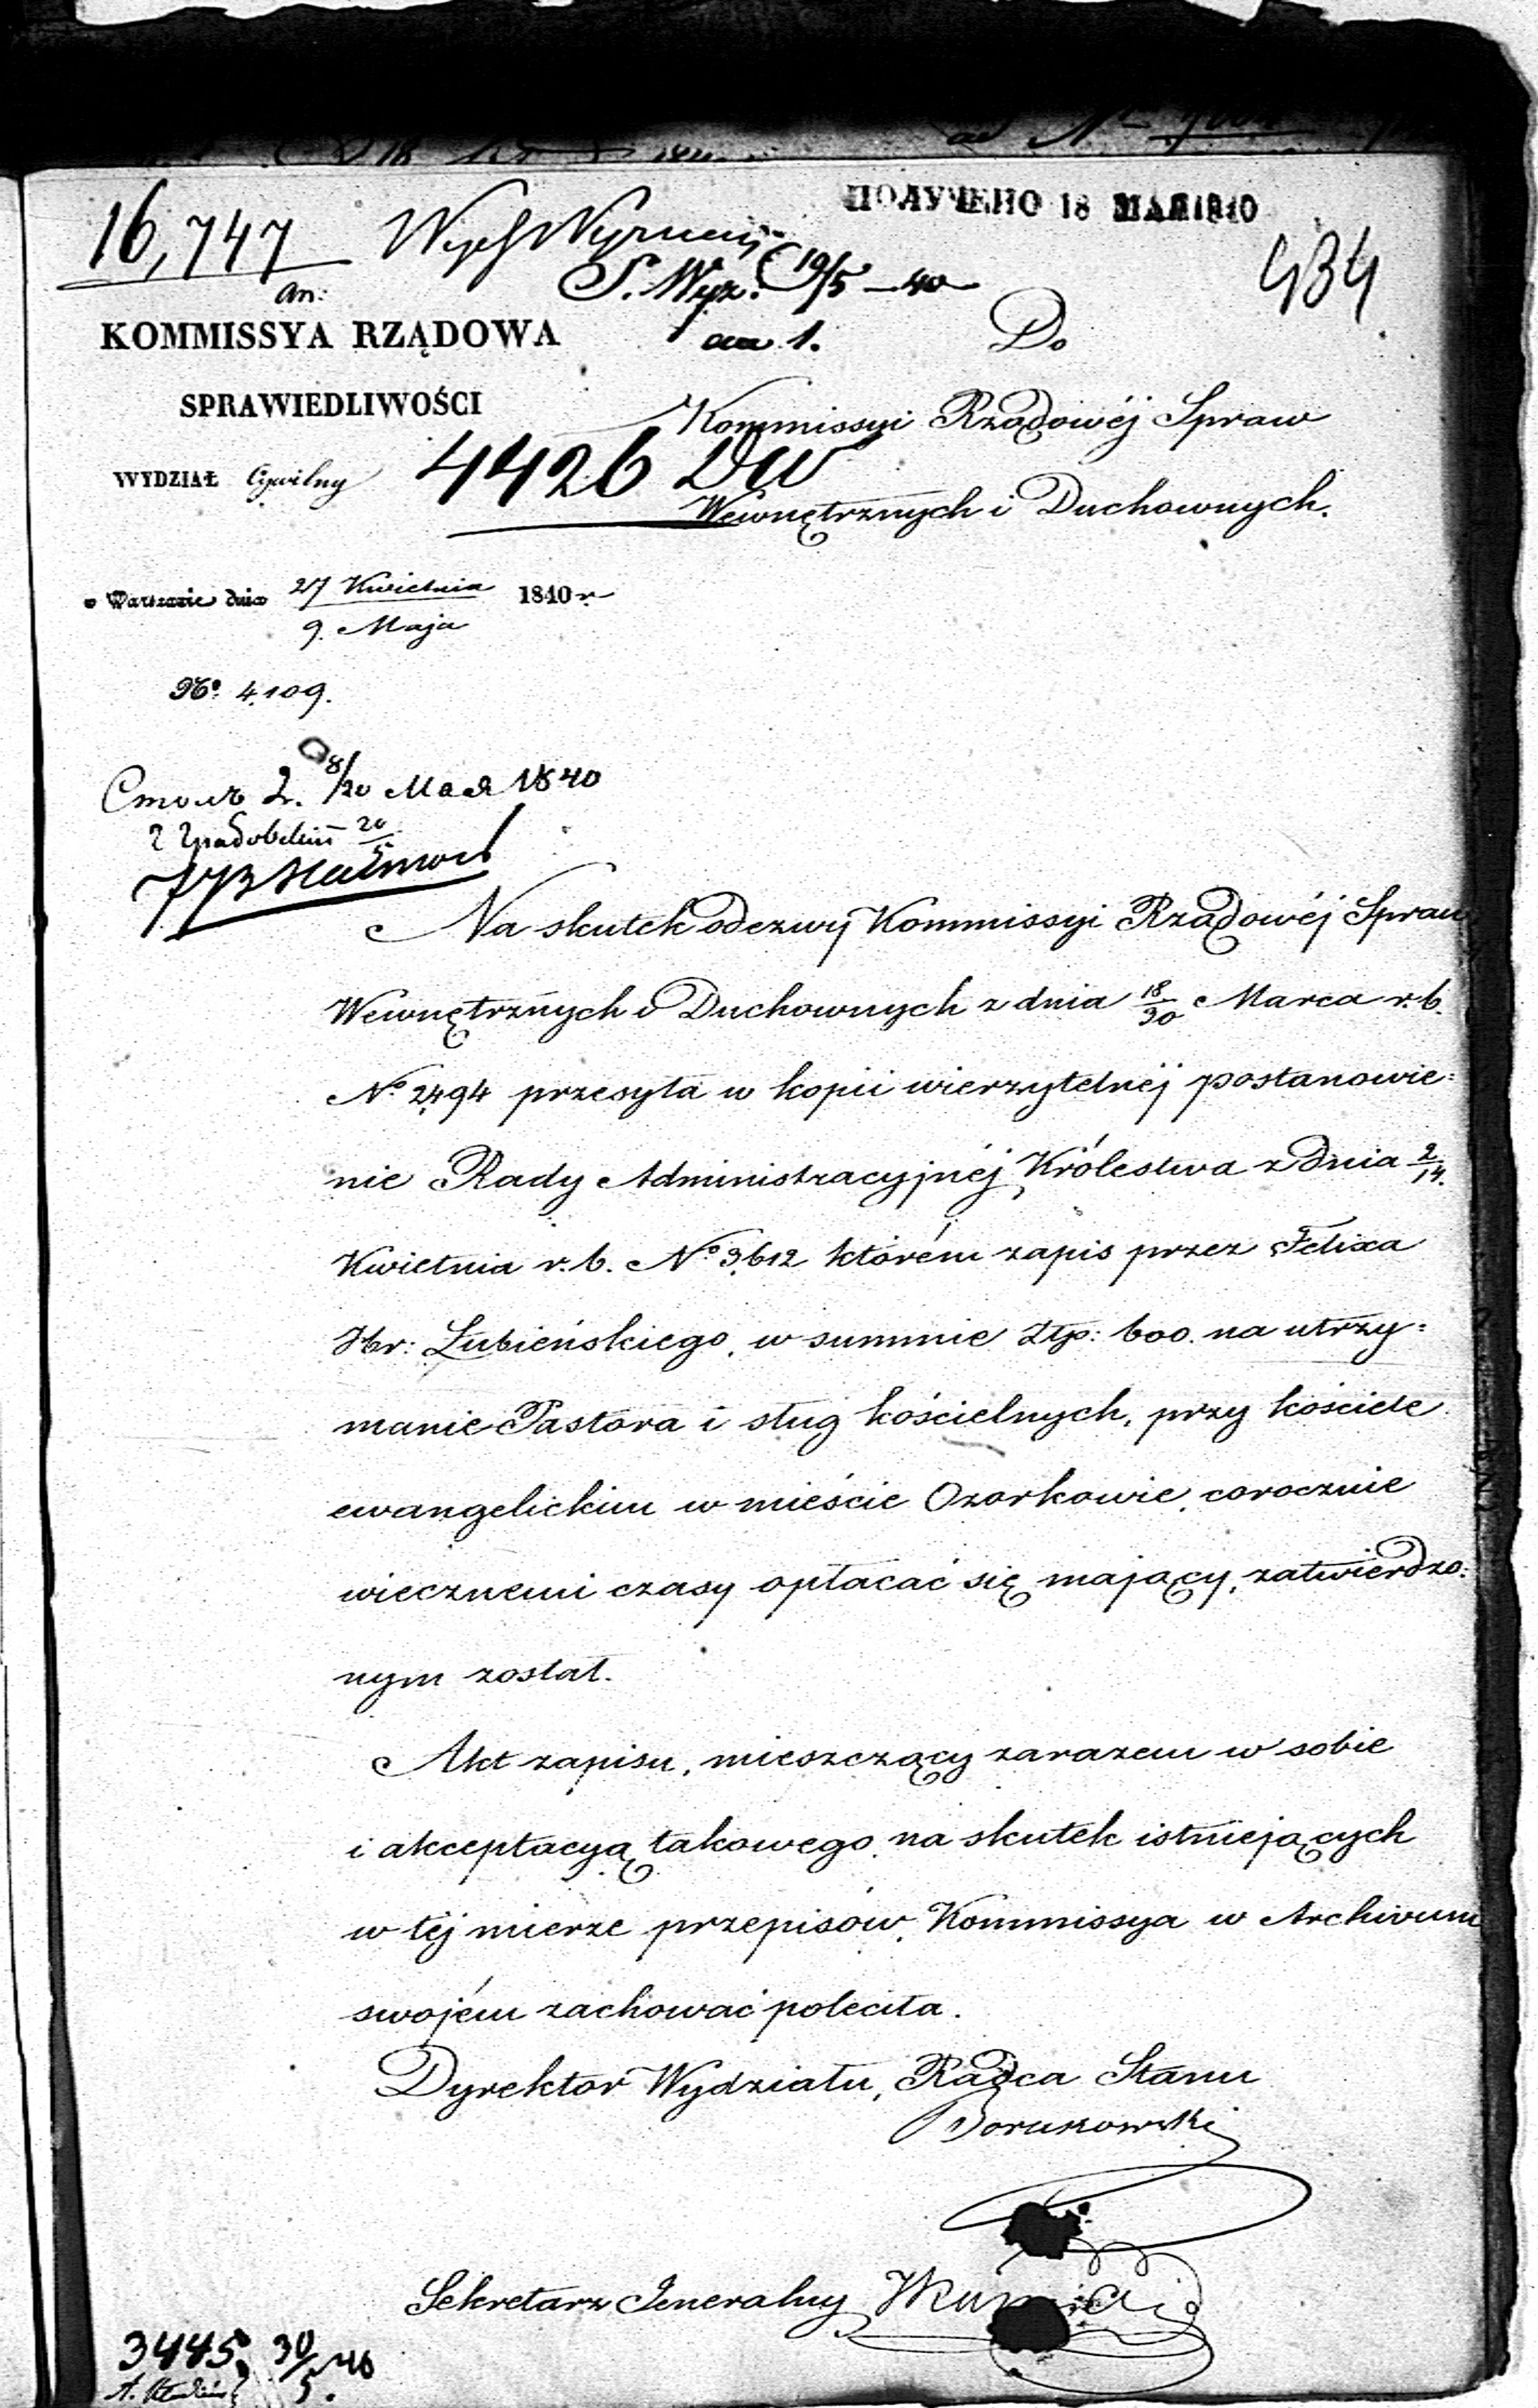 ПОЛУЧЕНО 18 МАЯ 1840
16,747
S. Wyz. 19/5 – 40
434
an:
an 1.
KOMMISSYA RZĄDOWA
SPRAWIEDLIWOŚCI
WYDZIAŁ Cywilny
4426 DW
Do
Kommissyi Rządowéj Spraw
Wewnętrznych i Duchownych.
w Warszawie dnia 27 Kwietnia / 9. Maja 1840 r.
No. 4109.
8/20 Мая 1840
20/5
Na skutek odezwy Kommissyi Rządowéj Spraw
Wewnętrznych i Duchownych z dnia 18/30 Marca r.b.
No 2494 przesyła w kopii wierzytelnéj postanowie=
nie Rady Administracyjnéj Królestwa z dnia 2/14.
Kwietnia r.b. No 3612 którém zapis przez Felixa
Hr: Łubieńskiego, w summie Złp: 600. na utrzy=
manie Pastora i sług kościelnych, przy kościele
ewangelickim w mieście Ozorkowie, corocznie
wiecznemi czasy opłacać się mający, zatwierdzo=
nym został.
Akt zapisu, mieszczący zarazem w sobie
i akceptacyą takowego, na skutek istniejących
w téj mierze przepisów, Kommissya w Archivum
swojém zachować poleciła.
Dyrektor Wydziału, Radca Stanu
Sekretarz Jeneralny
3445. 30/5 40